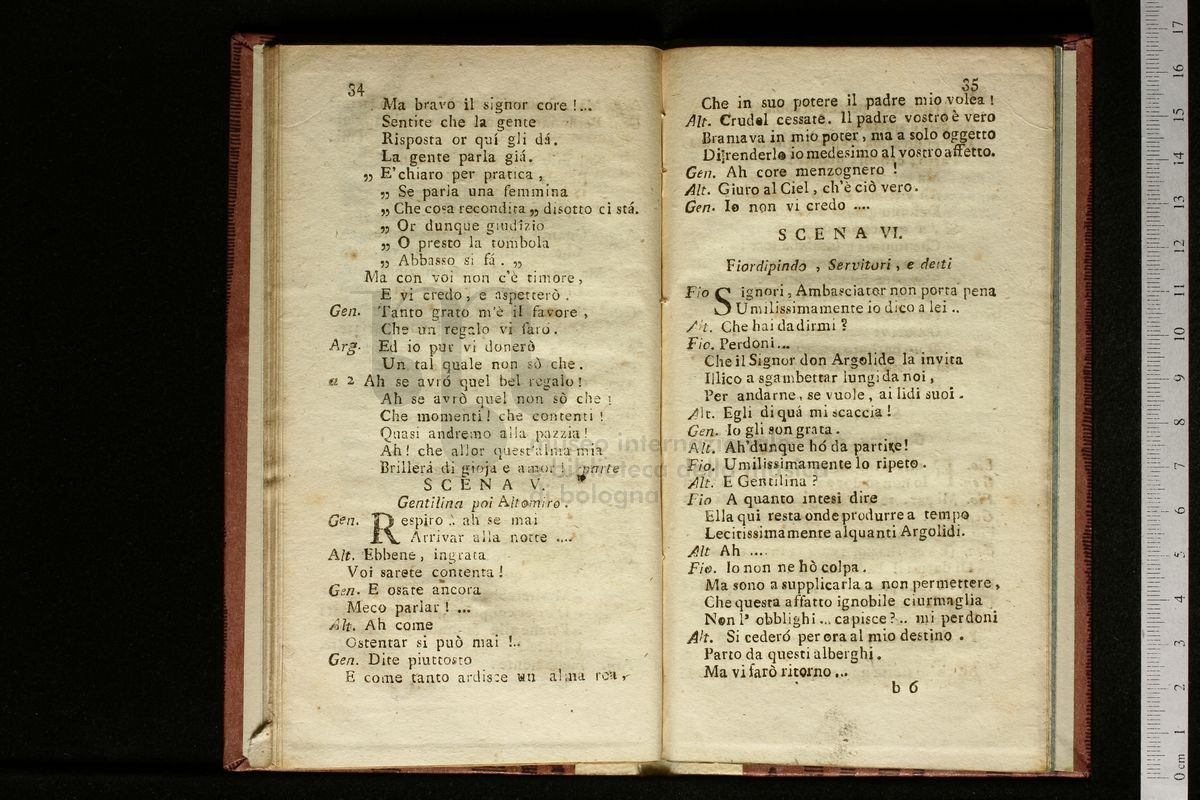 34
Ma bravo il signor core !...
Sentite che la gente
Risposta or quí gli dá.
La gente parla giá.
„ E'chiaro per pratica ,
„ Se parla una femmina
„ Che cosa recondita „ disotto ci stá.
„ Or dunque giudizio
„ O presto la tombola
„ Abbasso si fá . „
Ma con voi non c'è timore ,
E vi credo , e aspetterò .
Gen. Tanto grato m'è il favore ,
Che un regalo vi farò .
Arg. Ed io pur vi donerò
Un tal quale non sò che .
a 2 Ah se avrò quel bel regalo !
Ah se avrò quel non sò che !
Che momenti ! che contenti !
Quasi andremo alla pazzia !
Ah ! che allor quest'alma mia
Brillerá di gioja e amor ! parte
SCENA V.
Gentilina poi Altomiro .
Gen. Respiro .. ah se mai
Arrivar alla notte ....
Alt. Ebbene , ingrata
Voi sarete contenta !
Gen. E osate ancora
Meco parlar ! ...
Alt. Ah come
Ostentar si può mai !..
Gen. Dite piuttosto
E come tanto ardisce un alma rea ,
35
Che in suo potere il padre mio volea !
Alt. Crudel cessate. Il padre vostro è vero
Bramava in mio poter , ma a solo oggetto
Di renderlo io medesimo al vostro affetto.
Gen. Ah core menzognero !
Alt. Giuro al Ciel , ch'è ciò vero.
Gen. Io non vi credo ....
SCENA VI.
Fiordipindo , Servitori , e detti
Fio Signori , Ambasciator non porta pena
Umilissimamente io dico a lei ..
Alt. Che hai da dirmi ?
Fio. Perdoni ...
Che il Signor don Argolide la invita
Illico a sgambettar lungi da noi ,
Per andarne , se vuole , ai lidi suoi .
Alt. Egli di quá mi scaccia !
Gen. Io gli son grata .
Alt. Ah'dunque hó da partire!
Fio. Umilissimamente lo ripeto .
Alt. E Gentilina ?
Fio A quanto intesi dire
Ella qui resta onde produrre a tempo
Lecitissimamente alquanti Argolidi.
Alt Ah ....
Fio. Io non ne hò colpa .
Ma sono a supplicarla a non permettere ,
Che questa affatto ignobile ciurmaglia
Non l' obblighi ... capisce ? .. mi perdoni
Alt. Si cederó per ora al mio destino .
Parto da questi alberghi .
Ma vi farò ritorno ...
b 6
museo internazionale
e biblioteca della musica
di bologna
0 cm 1 2 3 4 5 6 7 8 9 10 11 12 13 14 15 16 17